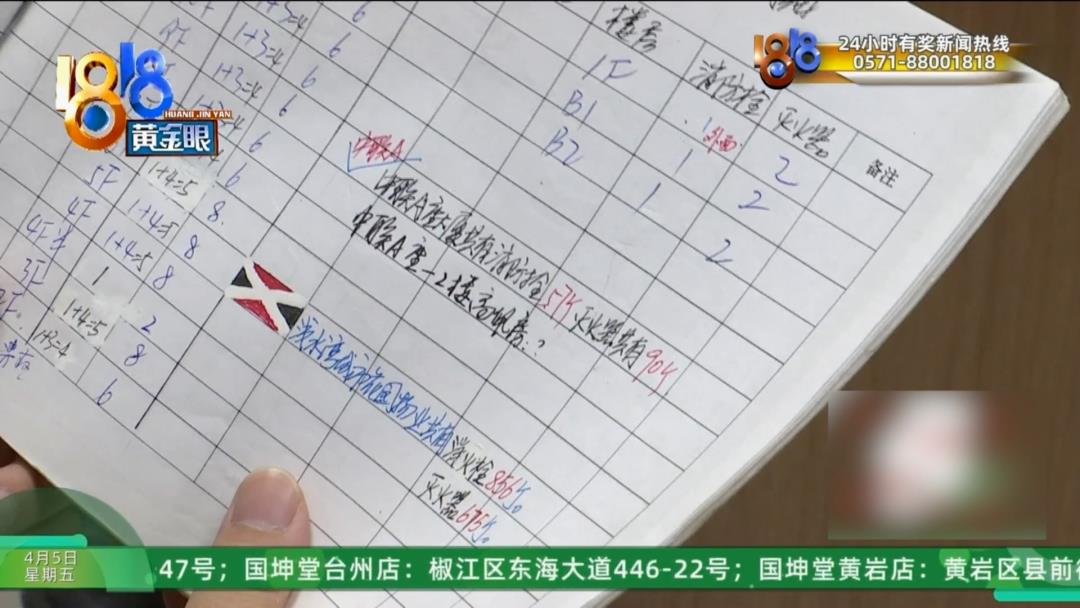 1818
HUANG JIN YAN
黄金眼
1818
24小时有奖新闻热线
0571-88001818
楼号 消防栓 灭火器 备注
1F 1 外面 2
B1 1 2
B2 2
1+3=4 6
1+3=4 6
1+3=4 6
6
1+4=5 6
5F 1+4=5 8
4F 1+4=5 8
4F半 1 8
3F 1+4=5 2
1+3=4 8
6
中联A
中联A座大厦共有消防栓57只 灭火器共有90只
中联A座-2楼
物业共有消火栓856只
灭火器675只
4月5日
星期五
47号；国坤堂台州店：椒江区东海大道446-22号；国坤堂黄岩店：黄岩区县前